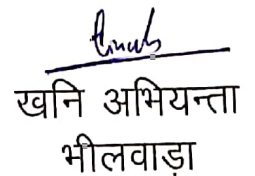 खनि अभियन्ता
भीलवाड़ा